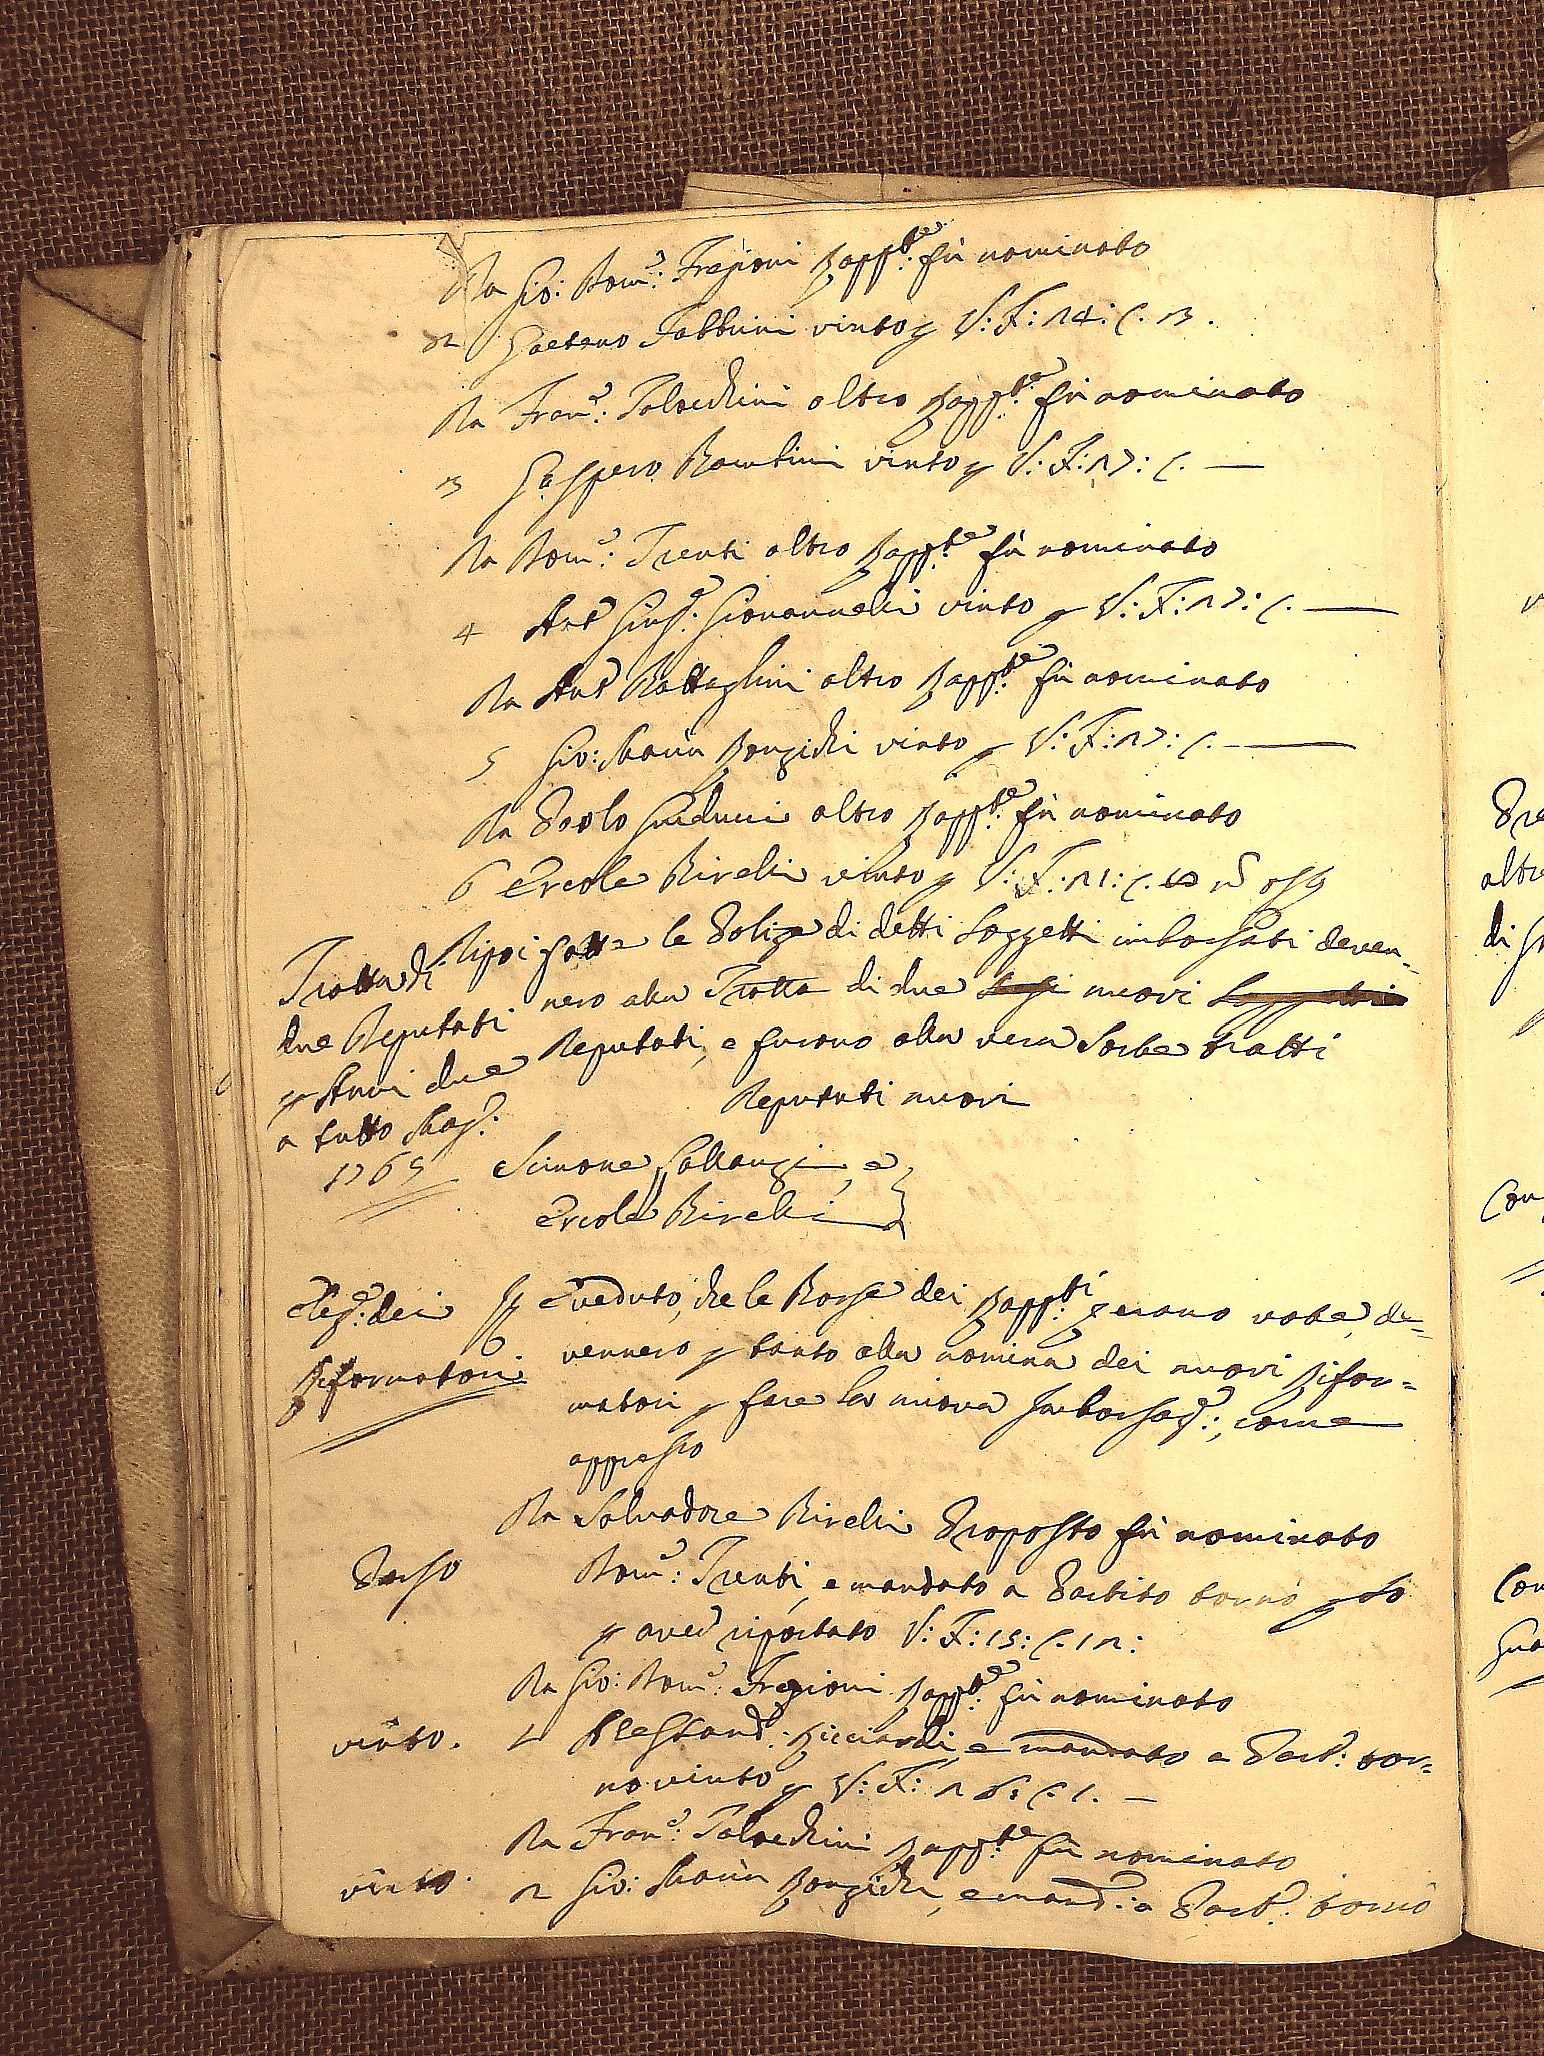 Da Gio: Dom.º Fregioni Rapp.te fù nominato
2 Gaetano Fabbrini vinto p V: F: 14: C. 3.
Da Fran.º Talocchini altro Rapp.te fù nominato
3 Gaspero Bambini vinto p V: F: 17: C. —
Da Dom.º Trenti altro Rapp.te fù nominato
4 Ant.º Gius.e Giovannelli vinto p V: F: 17: C. —
Da Ant.º Battaglini altro Rapp.te fù nominato
5 Gio: Maria vinto p V: F: 17: C. —
Da Paolo Guiducci altro Rapp.te fù nominato
6 Ercole Birelli vinto p V: F: 11: C.
Tratta di
due Deputati
p Anni due
a tutto Mag.º
1765
Dippoi fatte le Polize di detti Soggetti imborsati deven-
nero alla Tratta di due nuovi
Deputati, e furono alla vera Sorte tratti
Deputati nuovi
Simone Gallanzi, e
Ercole Birelli
Elez.e dei
Riformatori
E veduto, che le Borse dei Rapp.ti erano vote, de-
vennero p tanto alla nomina dei nuovi Rifor-
matori p fare la nuova Imborsaz.e, come
appresso
Da Salvadore Birelli Proposto fù nominato
Perso
Dom.º Trenti, e mandato a Partito tornò p-so
p aver riportato V: F: 5: C. 12:
Da Gio: Dom.º Fregioni Rapp.te fù nominato
vinto.
1 Alessand.º Ricciardi, e mandato a Part.º tor-
nò vinto p V: F: 16: C. 1. —
Da Fran.º Talocchini Rapp.te fù nominato
vinto.
2 Gio: Maria, e mand.º a Part.º tornò